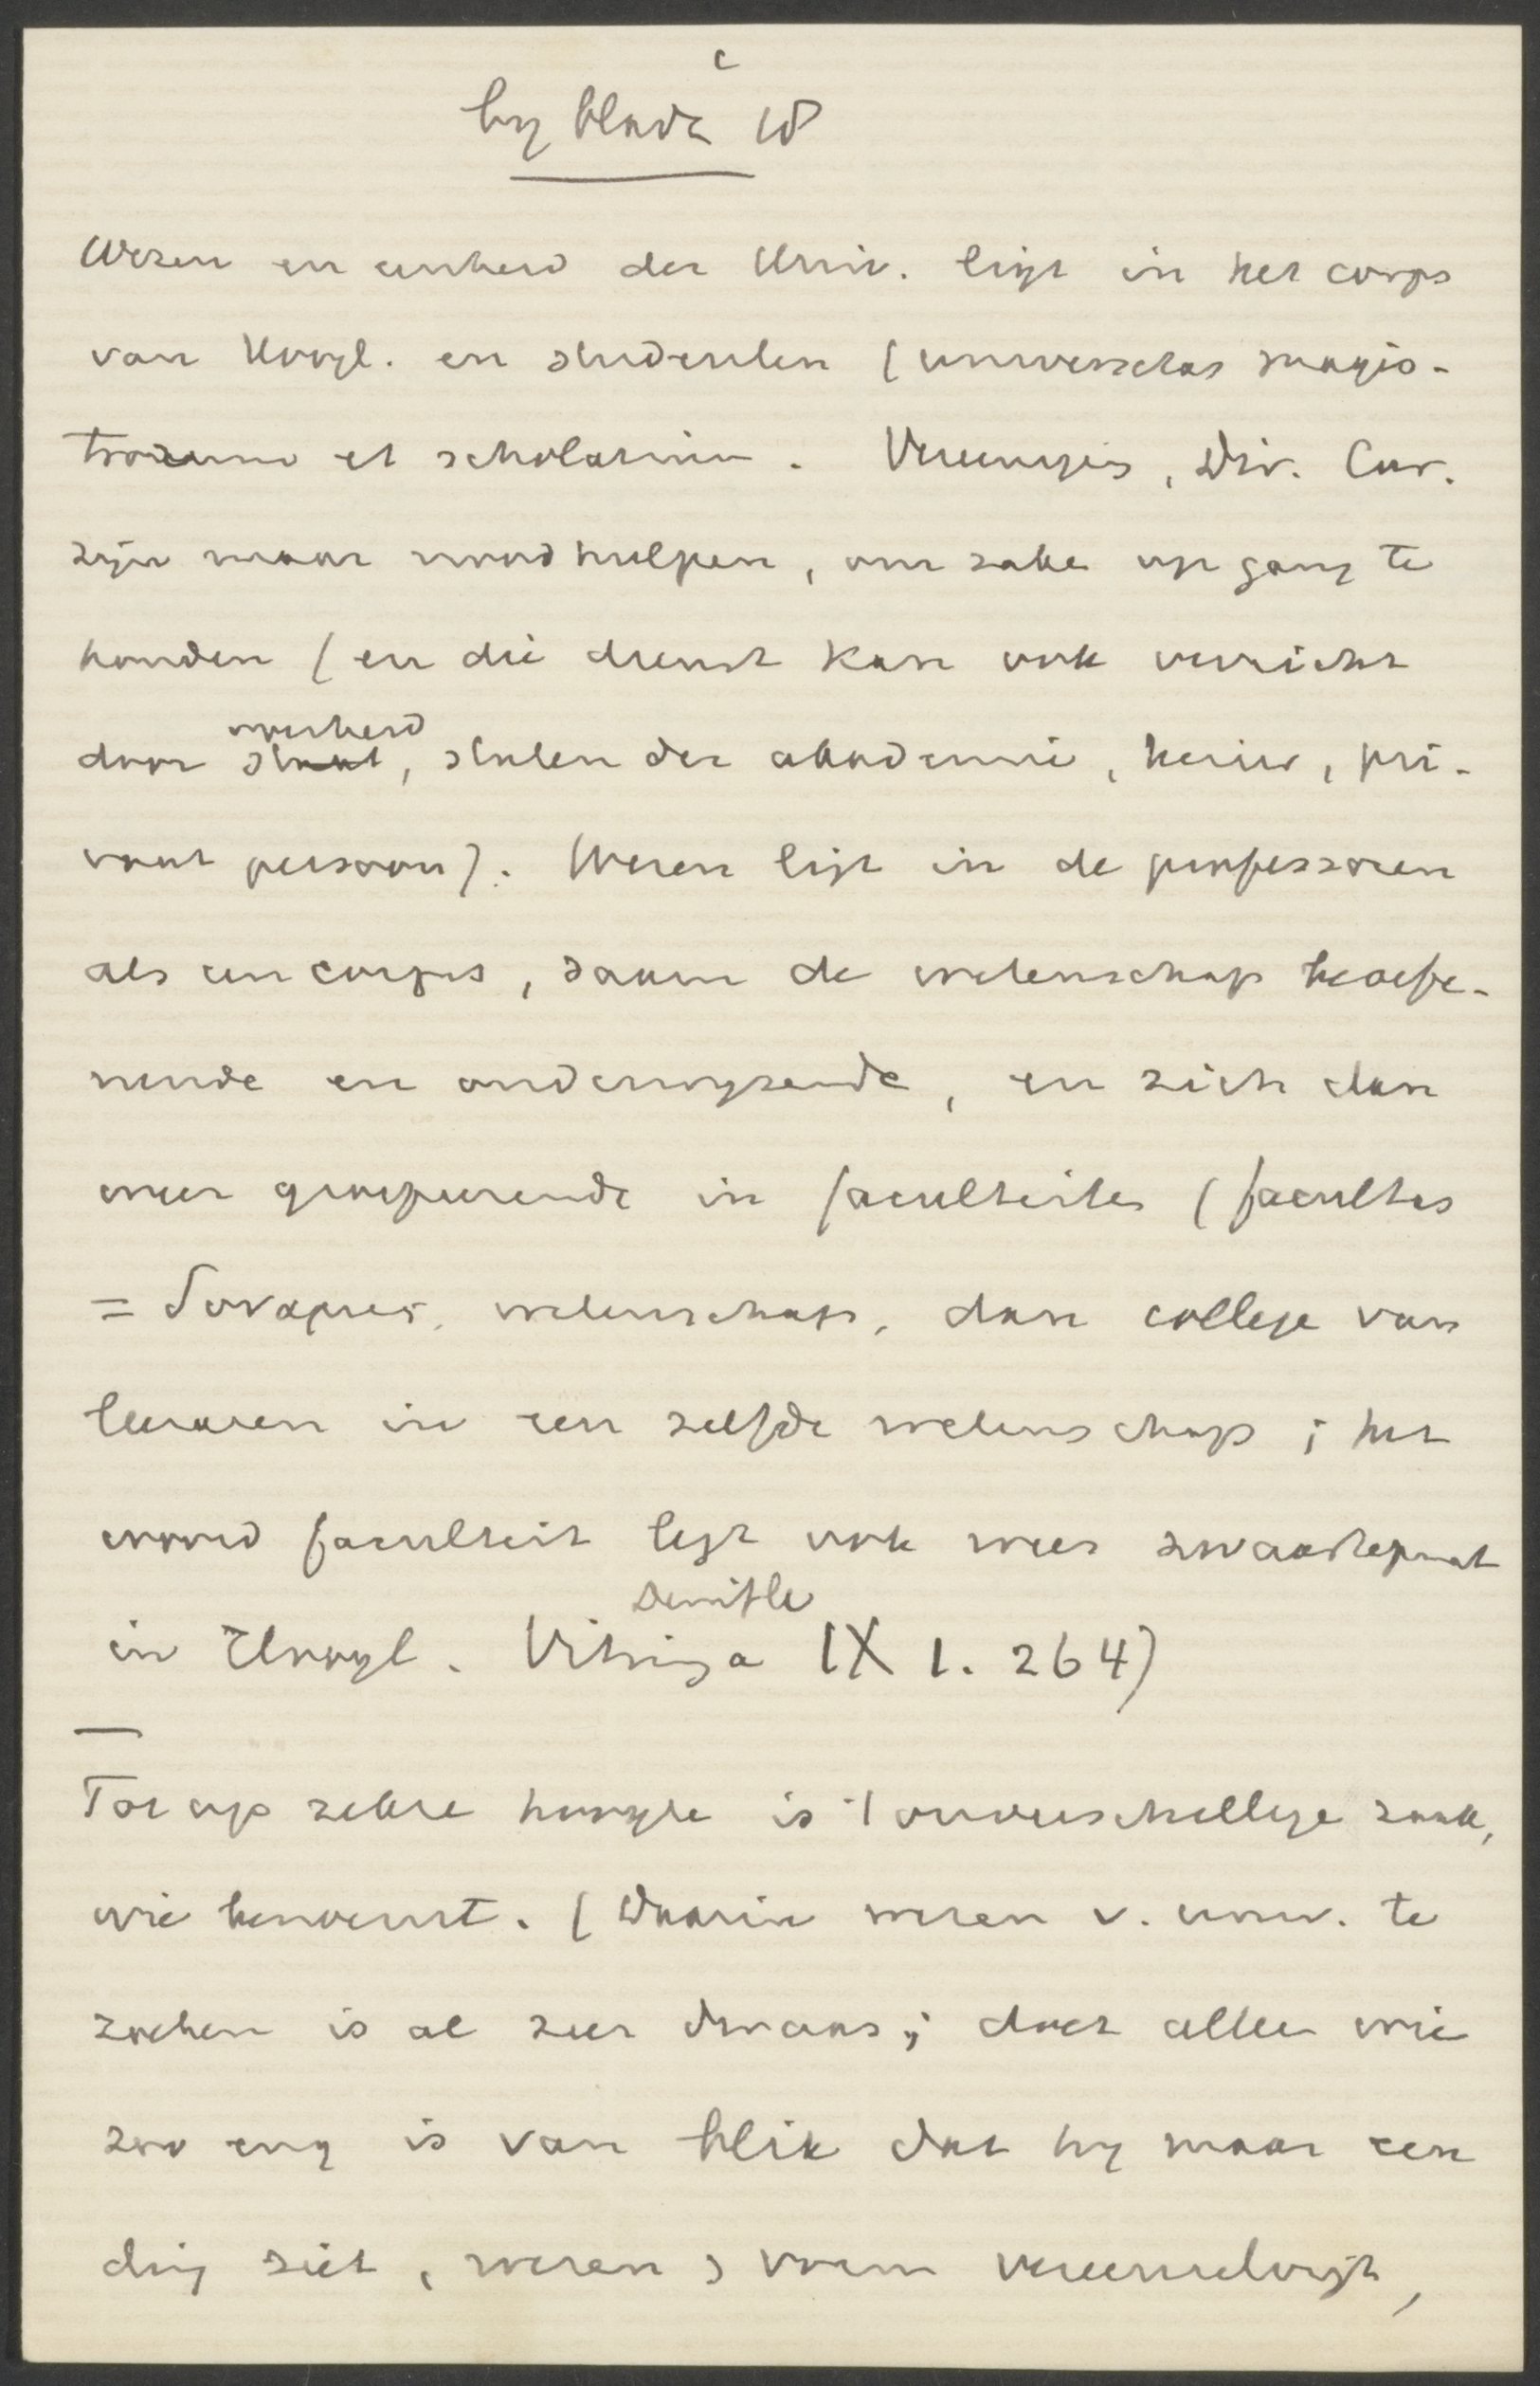 c
by bladz 18
Wezen en eenheid der Univ. ligt in het corps
van Hoogl. en studenten (universitas magis-
trorum et scholarium. Vereenigg, Dir. Cur.
zijn maar noodhulpen, om zake op gang te
houden (en die dienst kan ook verricht
overheid
door staat, staten der akademie, kerier, pri-
vaat persoon). Wezen ligt in de professoren
als een corpus, saam de wetenschap beoefe-
nende en onderwyzende, en zich dan
weer groepeerende in faculteiten (facultas
= δυναμις, wetenschap, dan college van
leeraren in een zelfde wetenschap; het
woord faculteit legt ook weer zwaartepunt
Denifle
in Hoogl. Vitringa IX 1. 264)
Tot op zekre hoogte is 't onverschillige zaak,
wie benoemt. (Daarin wezen v. univ. te
zoeken is al zeer dwaas; doet alleen wie
zoo eng is van blik dat hy maar een
ding ziet, wezen & vorm vereenzelvigt,